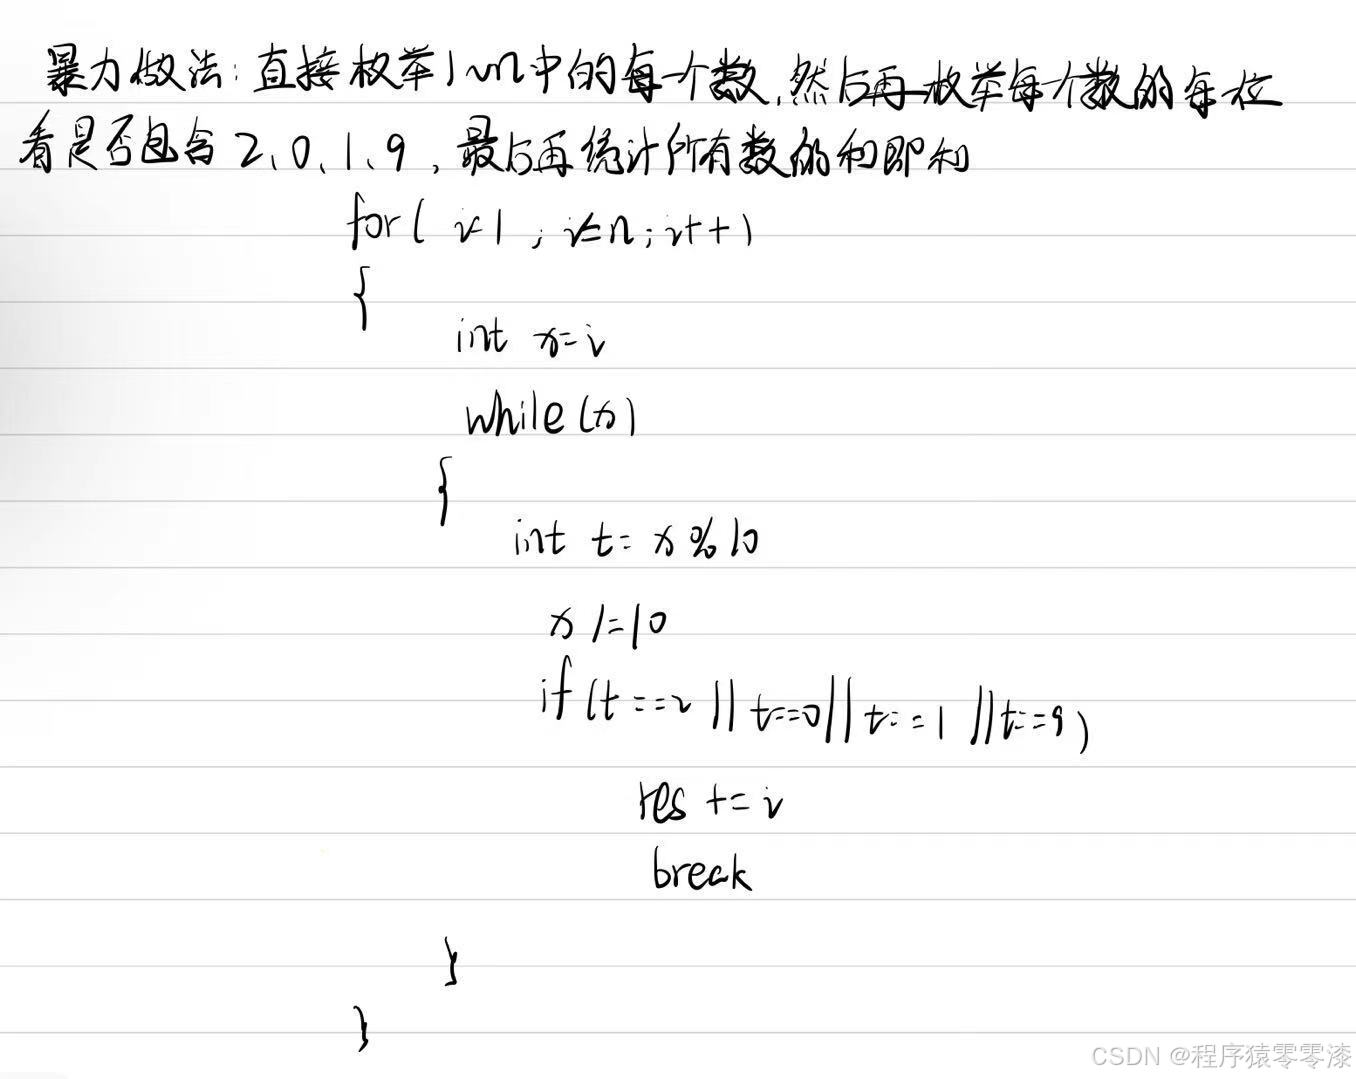 暴力做法:直接枚举1~n中的每一个数,然后再枚举每个数的每位
看是否包含2、0、1、9,最后再统计所有数的和即和
for( i=1 ; i<=n ; i++)
{
int x=i
while(x)
{
int t= x%10
x /=10
if(t==2 || t==0 || t==1 || t==9)
res += i
break
}
}
CSDN @程序猿零零漆